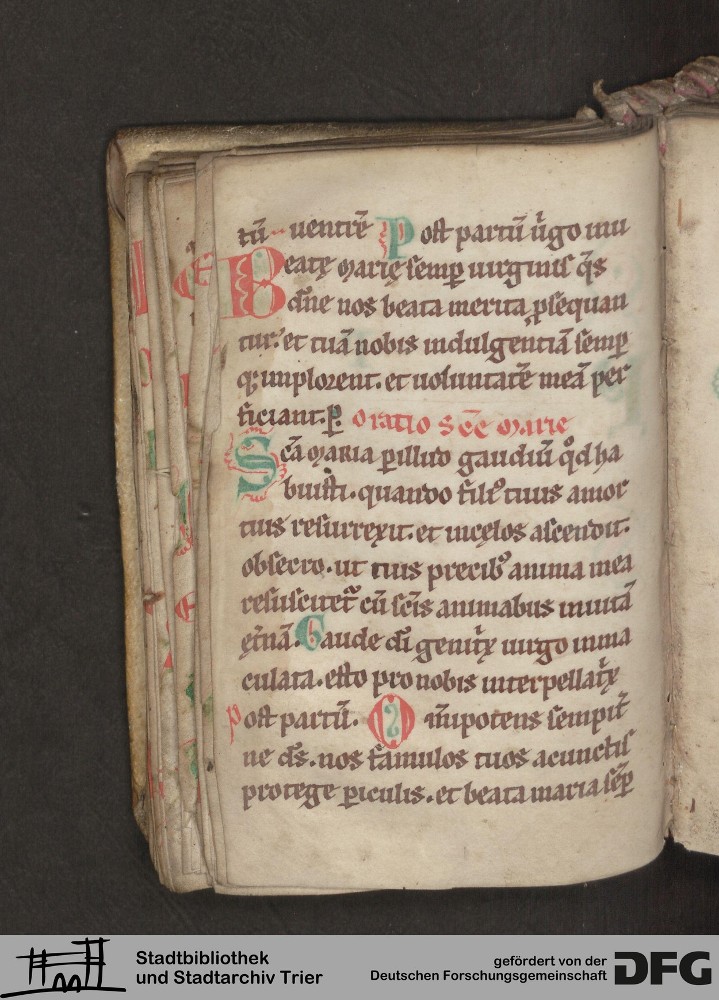 tū uentrē Post partū ůgo inu
Beatę marię semp̱ uirginis q̄s
dn̄e nos beata merita ꝓsequan
tur. et tuā nobis indulgentiā semp̱
q; implorent. et uoluntatē meā per
ficiant. p̱. Oratio Sc̄e Marie
Sc̄a maria p̱ illud gaudiū qͦd ha
buisti. quando filiꝰ tuus amor
tuus resurrexit. et in cęlos ascendit.
obsecro. ut tuis precibꝰ anima mea
resuscitet᷑ cū sc̄is animabus in uitā
ęt̄nā. Gaude dī genitͥx uirgo inma
culata. esto pro nobis interpellatͥx
Post partū. Om̄ipotens sempit̄
ne ds̄. nos famulos tuos a cunctis
protege p̱iculis. et beata maria sēp̱
Stadtbibliothek
und Stadtarchiv Trier
gefördert von der
Deutschen Forschungsgemeinschaft
DFG